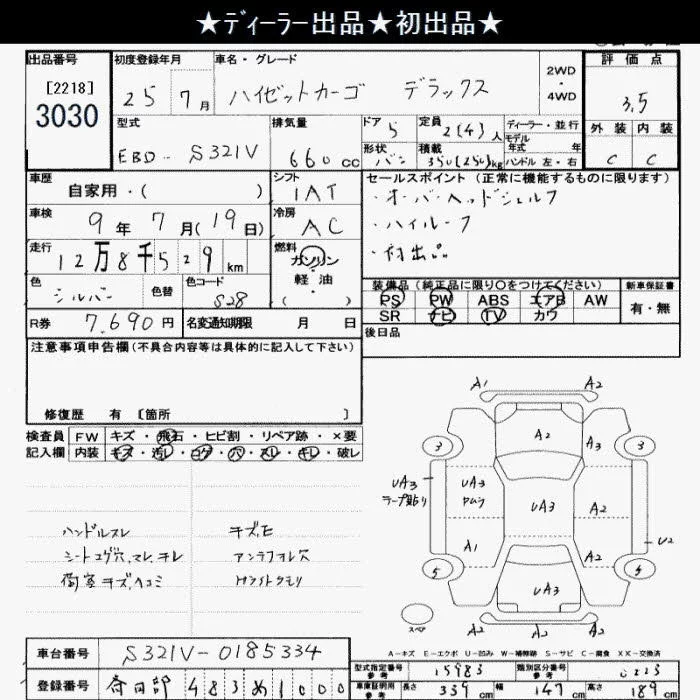 ★ディーラー出品★初出品★
出品番号 初度登録年月 車名・グレード 評価点
[2218] 2WD
3030 25 7月 ハイゼットカーゴ デラックス ・ 3.5
4WD
型式 排気量 ドア 定員 ディーラー・並行 外装 内装
5 2(4)人 モデル年式 年式
EBD-S321V 660cc 形状 積載 ハンドル 左・右 C C
バン 350(250)kg
車歴 シフト セールスポイント (正常に機能するものに限ります)
自家用・( ) IAT ・オーバーヘッドシェルフ
車検 冷房 ・ハイルーフ
9年7月(19日) AC ・初出品
走行 燃料
12万8千529km ガソリン・軽油
( )
色 色替 色コード 装備品 (純正品に限り○をつけてください) 新車保証書
シルバー S28 PS PW ABS エアB AW 有・無
SR ナビ TV カワ
R券 7,690円 名変通知期限 月 日 後日品
注意事項申告欄 (不具合内容等は具体的に記入して下さい)
修復歴 有 [箇所 ]
検査員 FW キズ・飛石・ヒビ割・リペア跡・×要
記入欄 内装 キズ・汚レ・コゲ・穴・スレ・キレ・破レ
A1 A2
3 A2 A3 3
UA3 UA3 UA3 A2
ラープ貼り
ハンドルスレ キズ、E
A1 A2 U2
シートコゲ穴、スレ、キレ アンテナオレ欠
5 5
荷室キズ、ヘコミ
UA3
スペア
A2 A2
A-キズ E-エクボ U-凹み W-補修跡 S-サビ C-腐食 XX-交換済
車台番号 S321V-0185334
型式指定番号 参考 15983 類別区分番号 参考
登録番号 春日部 483 あ 1000
車庫証明用 参考 長さ 339cm 幅 147cm 高さ 189cm